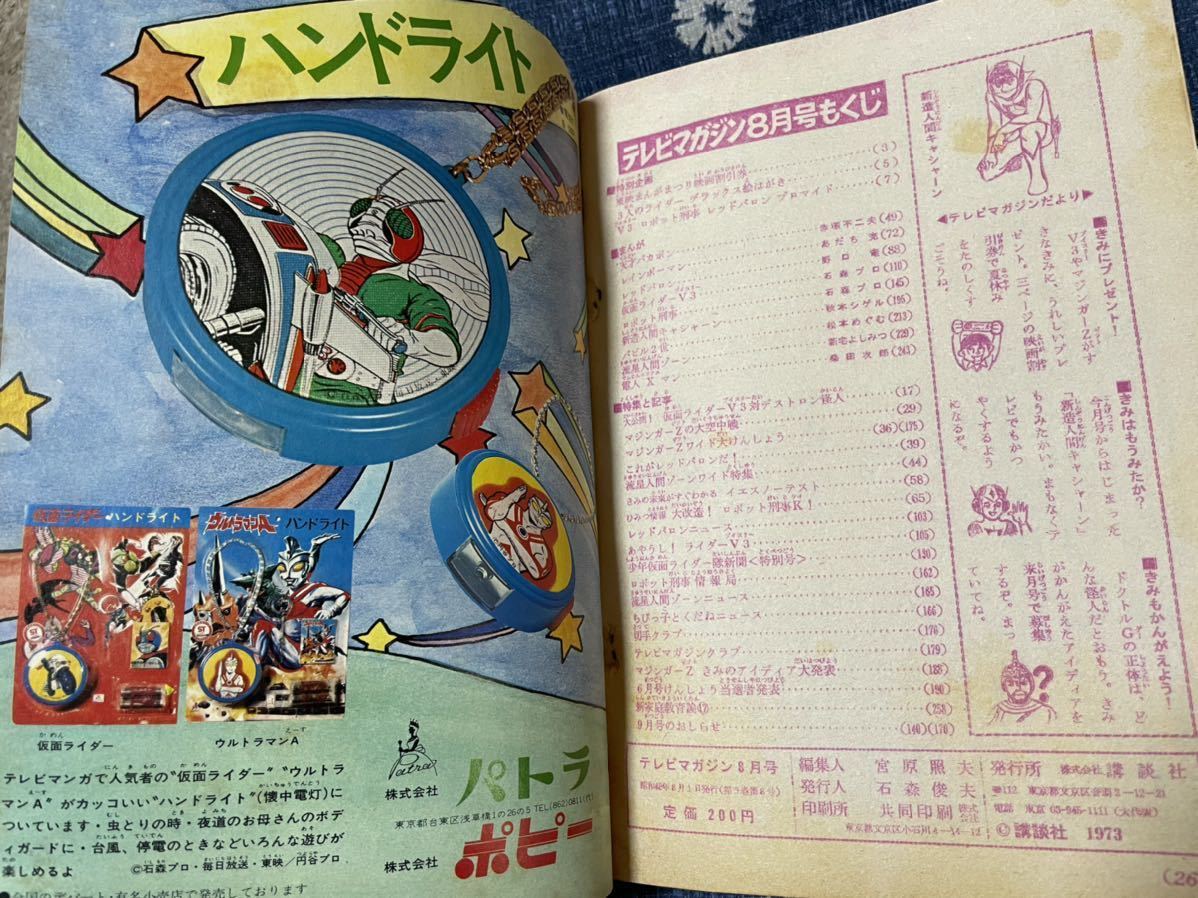 ハンドライト
仮面ライダー ハンドライト
ウルトラマンA ハンドライト
仮面ライダー
ウルトラマンA
テレビマンガで人気者の“仮面ライダー”“ウルトラ
マンA”がカッコいい“ハンドライト”(懐中電灯)に
ついています・虫とりの時・夜道のお母さんのボデ
ィガードに・台風、停電のときなどいろんな遊びが
楽しめるよ
©石森プロ・毎日放送・東映/円谷プロ
●全国のデパート・有名小売店で発売しております
Patra
株式会社 パトラ
東京都台東区浅草橋1の26の5 TEL(862)0811(代)
株式会社 ポピー
テレビマガジン8月号もくじ
■特別企画
東映まんがまつり映画割引券……(3)
3人のライダー デラックス絵はがき……(5)
V3 ロボット刑事 レッドバロン ブロマイド……(7)
■まんが
天才バカボン 赤塚不二夫(49)
レインボーマン あだち充(72)
レッドバロン 野口竜(88)
仮面ライダーV3 石森プロ(110)
ロボット刑事 石森プロ(145)
新造人間キャシャーン 秋本シゲル(195)
バビル2世 松本めぐむ(213)
流星人間ゾーン 新宅よしみつ(229)
電人Xマン 桑田次郎(243)
■特集と記事
大公開! 仮面ライダーV3対デストロン怪人……(17)
マジンガーZの大空中戦……(29)
マジンガーZワイド大けんしょう……(36)(175)
これがレッドバロンだ!……(39)
流星人間ゾーンワイド特集……(44)
きみの未来がすぐわかる イエスノーテスト……(58)
ひみつ情報 大改造! ロボット刑事K!……(65)
レッドバロンニュース……(103)
あやうし! ライダーV3……(105)
少年仮面ライダー隊新聞<特別号>……(130)
ロボット刑事情報局……(162)
流星人間ゾーンニュース……(165)
ちびっ子とくだねニュース……(166)
切手クラブ……(176)
テレビマガジンクラブ……(179)
マジンガーZ きみのアイディア大発表……(188)
6月号けんしょう当選者発表……(190)
新家庭教育論㊷……(258)
9月号のおしらせ……(140)(170)
新造人間キャシャーン
◀テレビマガジンだより▶
■きみにプレゼント!
V3やマジンガーZがす
きなきみに、うれしいプレ
ゼント。三ページの映画割
引券で夏休み
をたのしくす
ごそうね。
■きみはもうみたか?
今月号からはじまった
「新造人間キャシャーン」
もうみたかい。まもなくテ
レビでもかつ
やくするよう
になるぞ。
■きみもかんがえよう!
ドクトルGの正体は、ど
んな怪人だとおもう。きみ
がかんがえたアイディアを
来月号で募集
するぞ。まっ
ていてね。
テレビマガジン8月号
昭和48年8月1日発行(第3巻第8号)
定価200円
編集人 宮原照夫
発行人 石森俊夫
印刷所 共同印刷株式会社
東京都文京区小石川4-14-12
発行所 株式会社 講談社
〒112 東京都文京区音羽2-12-21
電話 東京 03-945-1111(大代表)
©講談社 1973